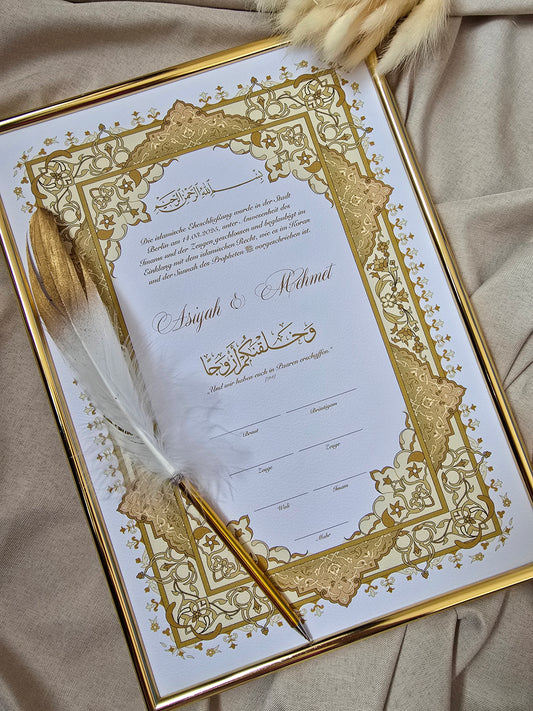 بسم الله الرحمن الرحيم
Die islamische Eheschließung wurde in der Stadt
Berlin am 14.03.2025, unter Anwesenheit des
Imams und der Zeugen geschlossen und beglaubigt im
Einklang mit dem islamischen Recht, wie es im Koran
und der Sunnah des Propheten ﷺ vorgeschrieben ist.
Asiyah & Mehmet
وَخَلَقْنَٰكُمْ أَزْوَٰجًا
„Und wir haben euch in Paaren erschaffen."
[78:8]
Braut Bräutigam
Zeuge Zeuge
Wali Imam
Mahr